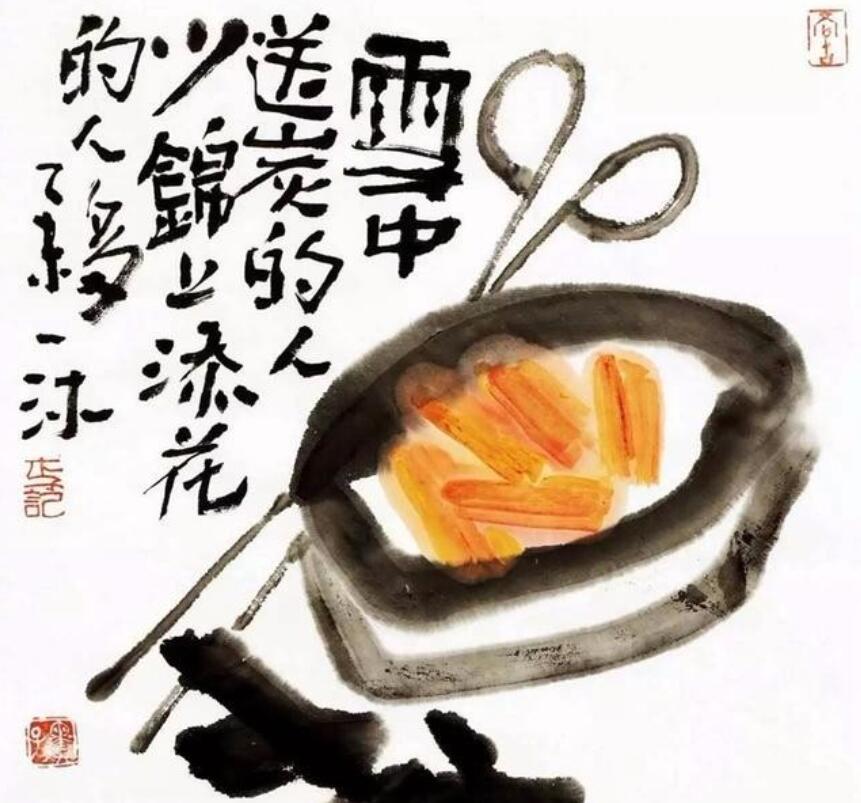 雪中
送炭的人
少錦上添花
的人多
乙未一沐